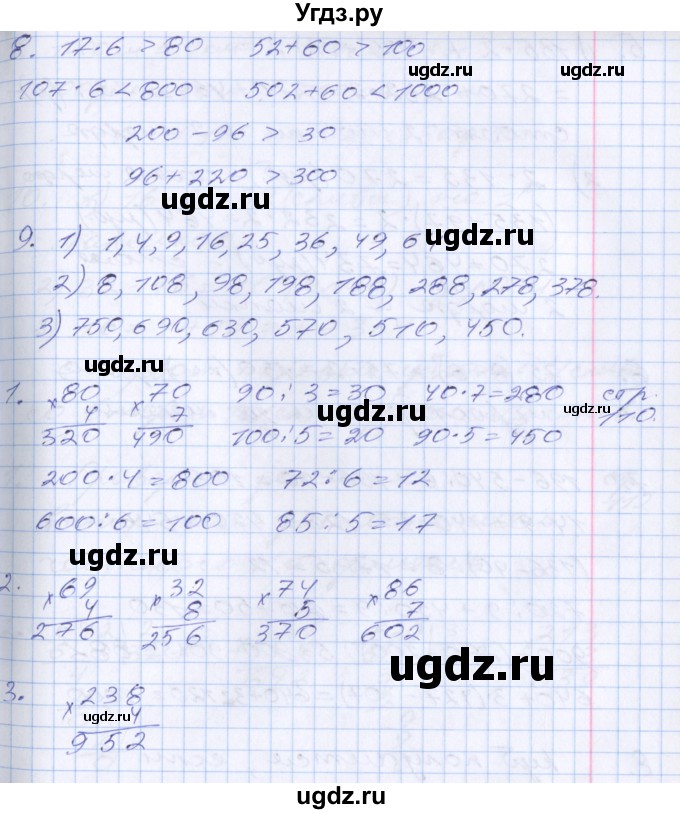 Угдз.ру
8. 17·6 > 80 52+60 > 100
ugdz.ru ugdz.ru
107·6 < 800 502+60 < 1000
200-96 > 30
96+220 > 300
ugdz.ru ugdz.ru
9. 1) 1, 4, 9, 16, 25, 36, 49, 6
ugdz.ru
2) 8, 108, 98, 198, 188, 288, 278, 378.
3) 750, 690, 630, 570, 510, 450.
ugdz.ru ugdz.ru
1. × 80 × 70 90:3=30 40·7=280 стр.
4 7 ugdz.ru ugdz.ru 110.
320 490 100:5=20 90·5=450
200·4=800 72:6=12
600:6=100 85:5=17
ugdz.ru ugdz.ru
2. × 69 × 32 × 74 × 86
4 8 5 7
276 256 370 602
ugdz.ru
3. × 238
ugdz.ru 4
952
ugdz.ru
ugdz.ru